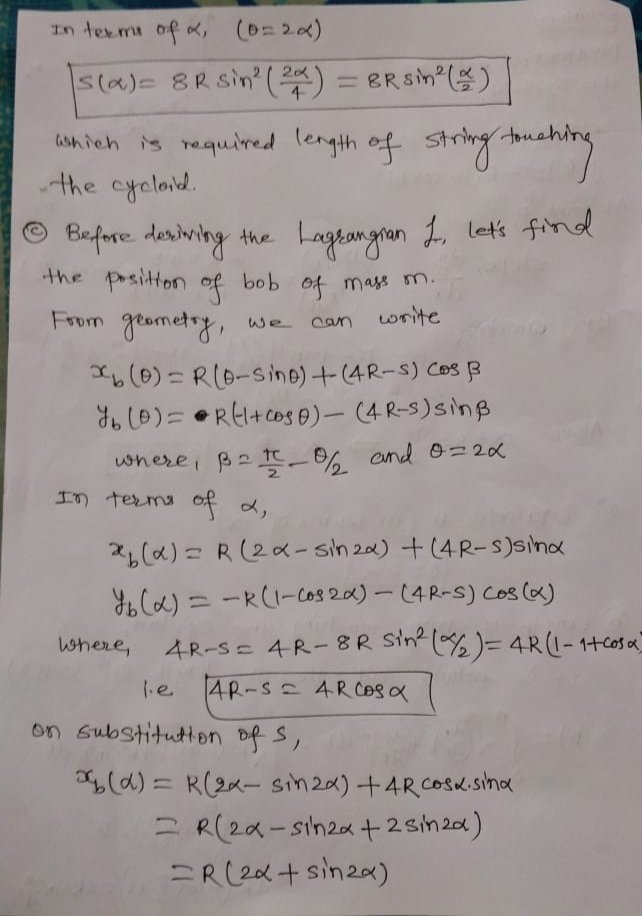 In terms of α, (θ = 2α)
S(α) = 8R sin²(2α/4) = 8R sin²(α/2)
which is required length of string touching
the cycloid.
(c) Before deriving the Lagrangian L, let's find
the position of bob of mass m.
From geometry, we can write
x_b(θ) = R(θ - sinθ) + (4R-S) cos β
y_b(θ) = R(-1+cosθ) - (4R-S) sin β
where, β = π/2 - θ/2 and θ = 2α
In terms of α,
x_b(α) = R(2α - sin2α) + (4R-S) sinα
y_b(α) = -R(1-cos2α) - (4R-S) cos(α)
where, 4R-S = 4R - 8R sin²(α/2) = 4R(1-1+cosα)
i.e 4R-S = 4R cosα
on substitution of S,
x_b(α) = R(2α - sin2α) + 4R cosα.sinα
= R(2α - sin2α + 2sin2α)
= R(2α + sin2α)